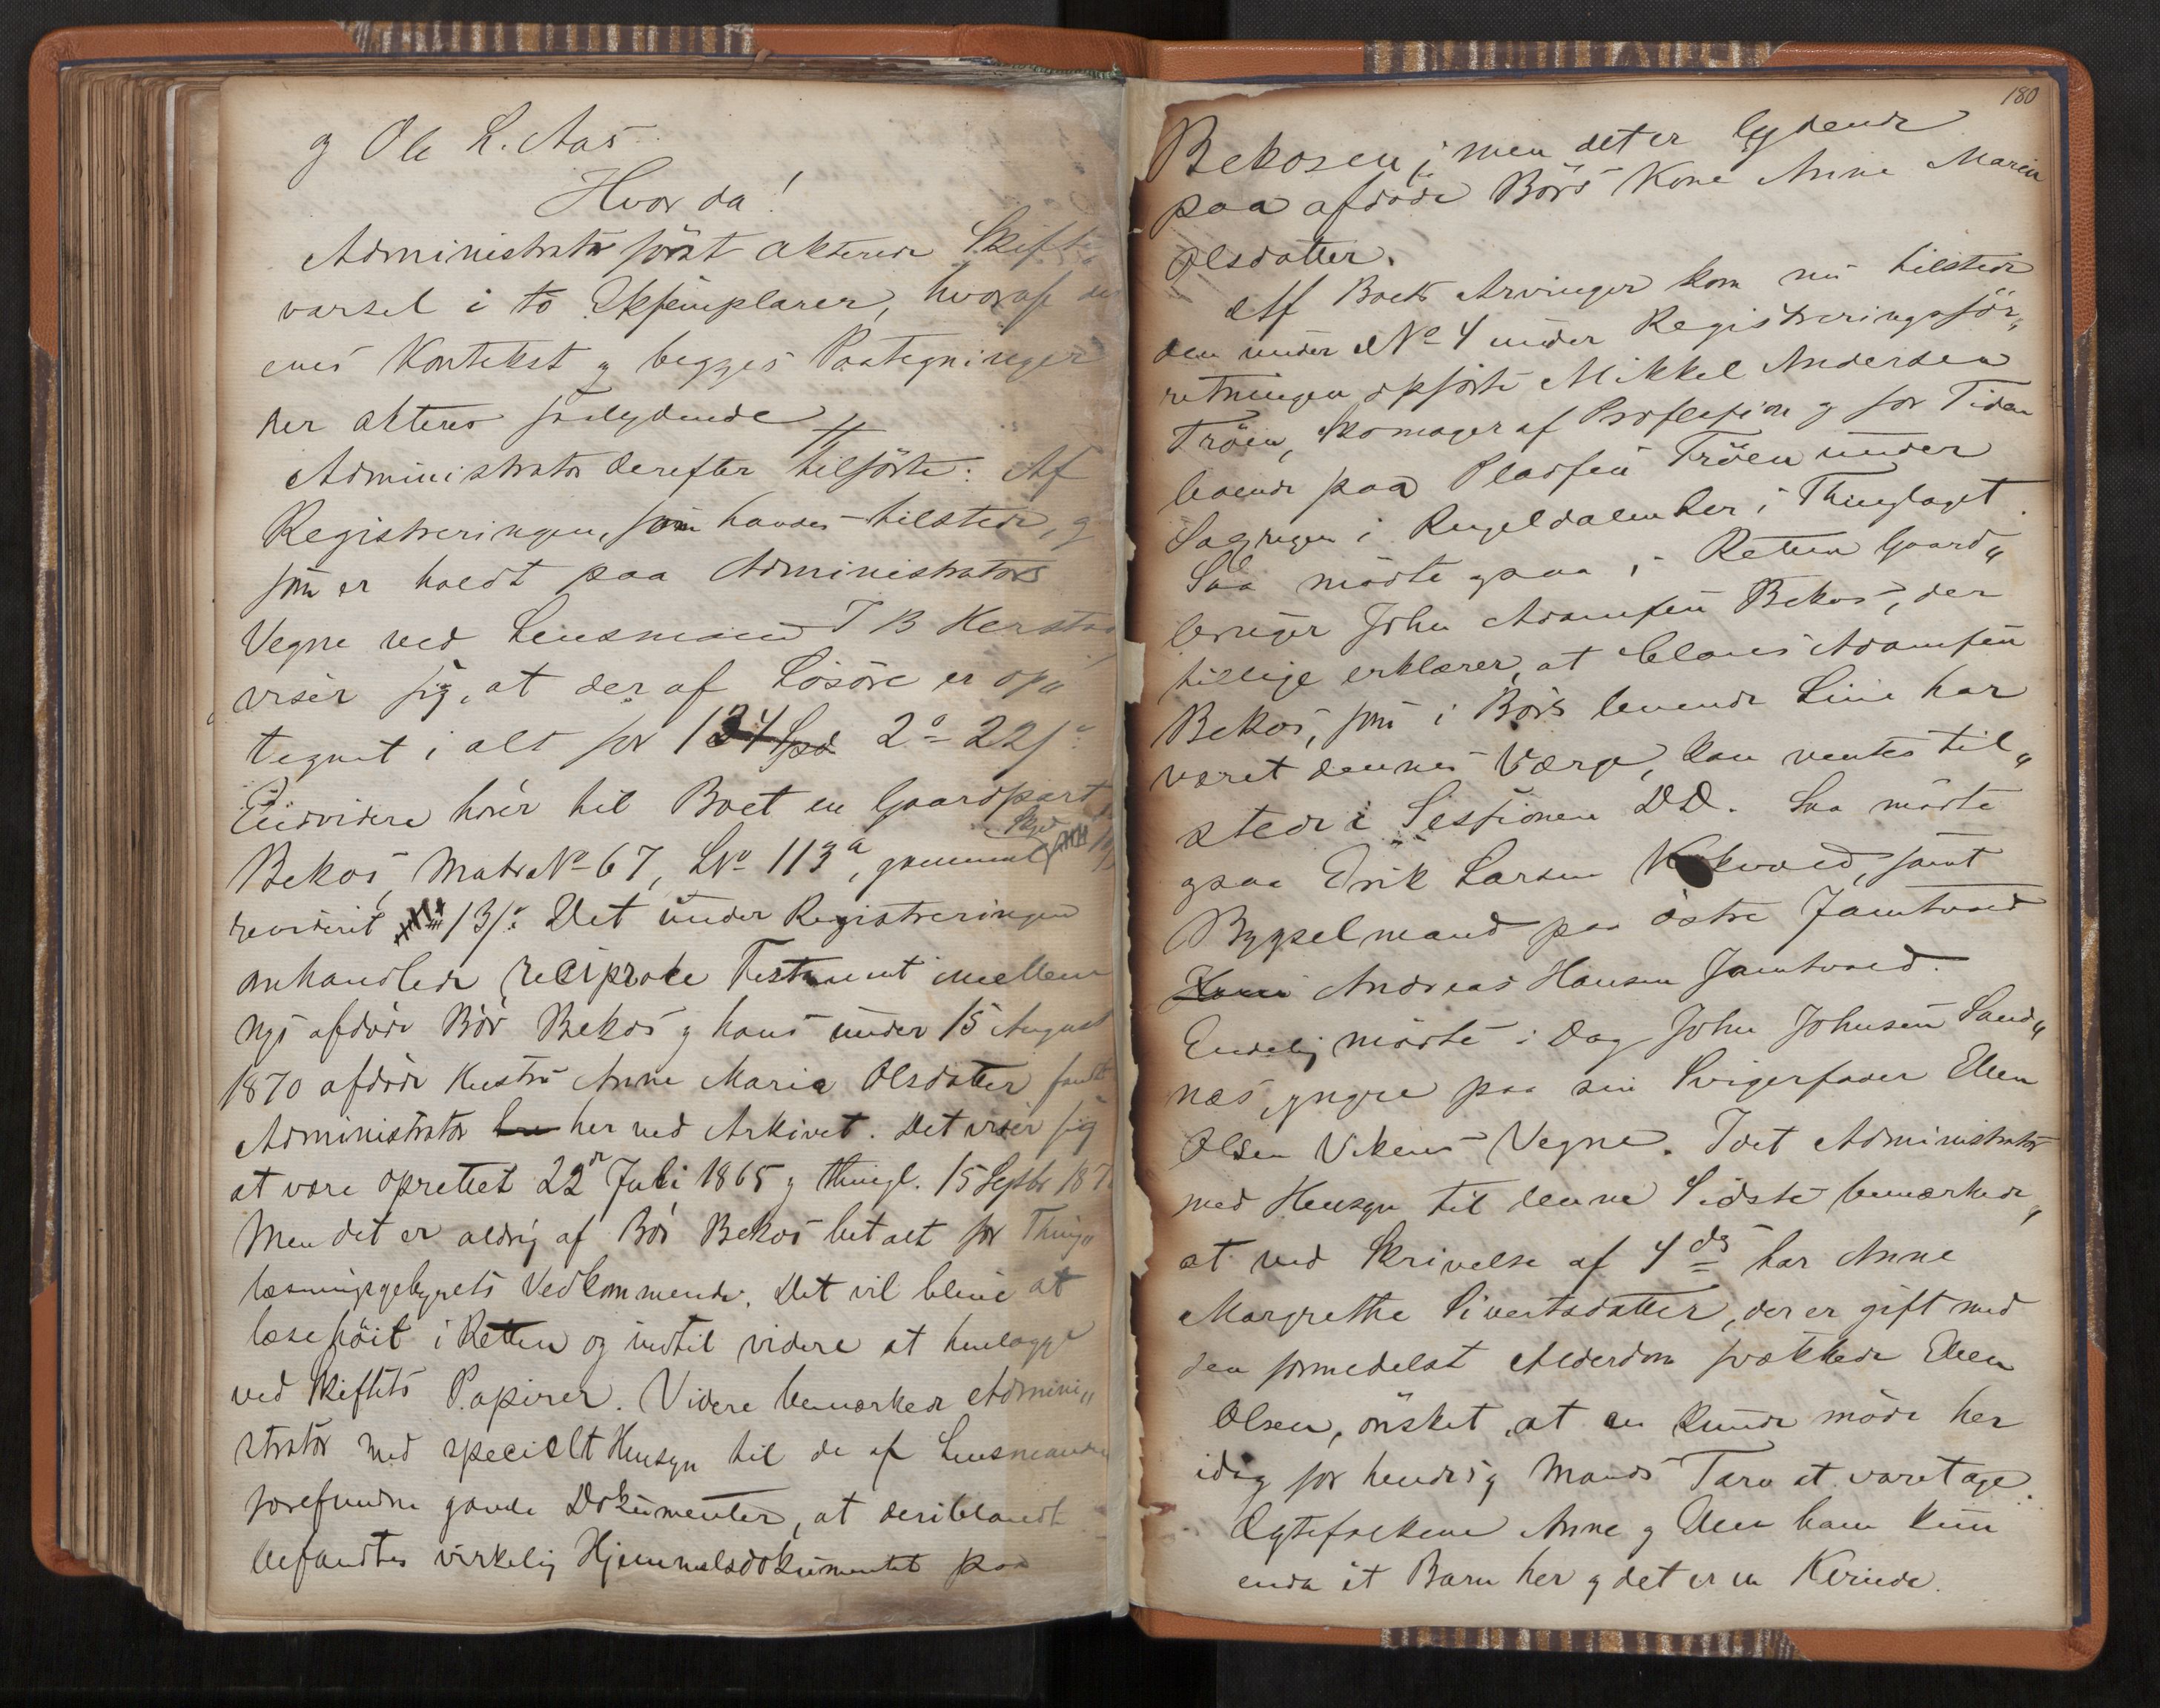 g Ole L. Aas
Hvor da!
Administrator först akterede Skifte
varsel i to Exsemplarer, hvoraf
enes Kontekst g begges Paategninger
her akteres saalydende #
Administrator derefter tilförte: Af
Registreringen, som havdes tilstede, g
som er holdt paa Administrators
Vegne ved Lensmand J B Kerstad
viser sig, at der af Lösöre er op„
tegnet i alt for 124 Spd 2 22 s
Endvidere hörer til Boet en Gaardpart
Bekos Matr No 67, LNo 113a, gammel Skyld
revideret 13 s. Det under Registreringen
omhandlede reciproke Testament imellem
nys afdöde Bör Bekos g hans under 15 August
1870 afdöde Kustru Anne Maria Olsdatter fandt
Administrator her ved Arkivet. Det viser sig
at vore oprettet 22de Juli 1865 g thingl. 15 Septbr 187
Men det er aldrig af Bör Bekos betalt for Thing„
læsningsgebyrets Vedkommende. Det vil blive at
læse höit i Retten og indtil videre at henlægge
ved Skiftets Papirer. Videre bemærkede Admini„
strator med specielt Hensyn til de af Lensmanden
forefundne gamle Dokumenter, at deriblandt
befandtes virkelig Hjemmelsdokumentet paa
180
Bekosen; men det er lydende
paa afdöde Börs Kone Anne Maria
Olsdatter.
Af Boets Arvinger kom nu tilstede
den under No 4 under Registreringsför„
retningen opförte Mikkel Andersen
Tröen, Skomager af Profession g for Tiden
boende paa Pladsen Tröen under
i Ringeldalen her i Thinglaget.
Saa mödte ogsaa i Retten Gaard„
bruger John Adamsen Bekos, der
tillige erklærer, at Claus Adamsen
Bekos, som i Börs levende Live har
været dennes Værge, kan ventes til„
stede i Sessionen DD. Saa mödte
ogsaa Erik Larsen Kokvold, samt
Bygselmand paa östre Jamtvold
Andreas Hansen Jamtvold.
Endelig mödte i Dag John Johnsen Sand„
næs yngre paa sin Svigerfader Ellen
Olsen Vikens Vegne. Idet Administrator
med Hensyn til denne Sidste bemærkede,
at ved Skrivelse af 4 ds har Anne
Margrethe Sivertsdatter, der er gift med
den formedelst Alderdom svækkede Ellen
Olsen, önsket, at en kunde möde her
idag for hendes g Mands Tarv at varetage.
Ægtefolkene Anne g Ellen have kun
enda et Barn her g det er en Kvinde.